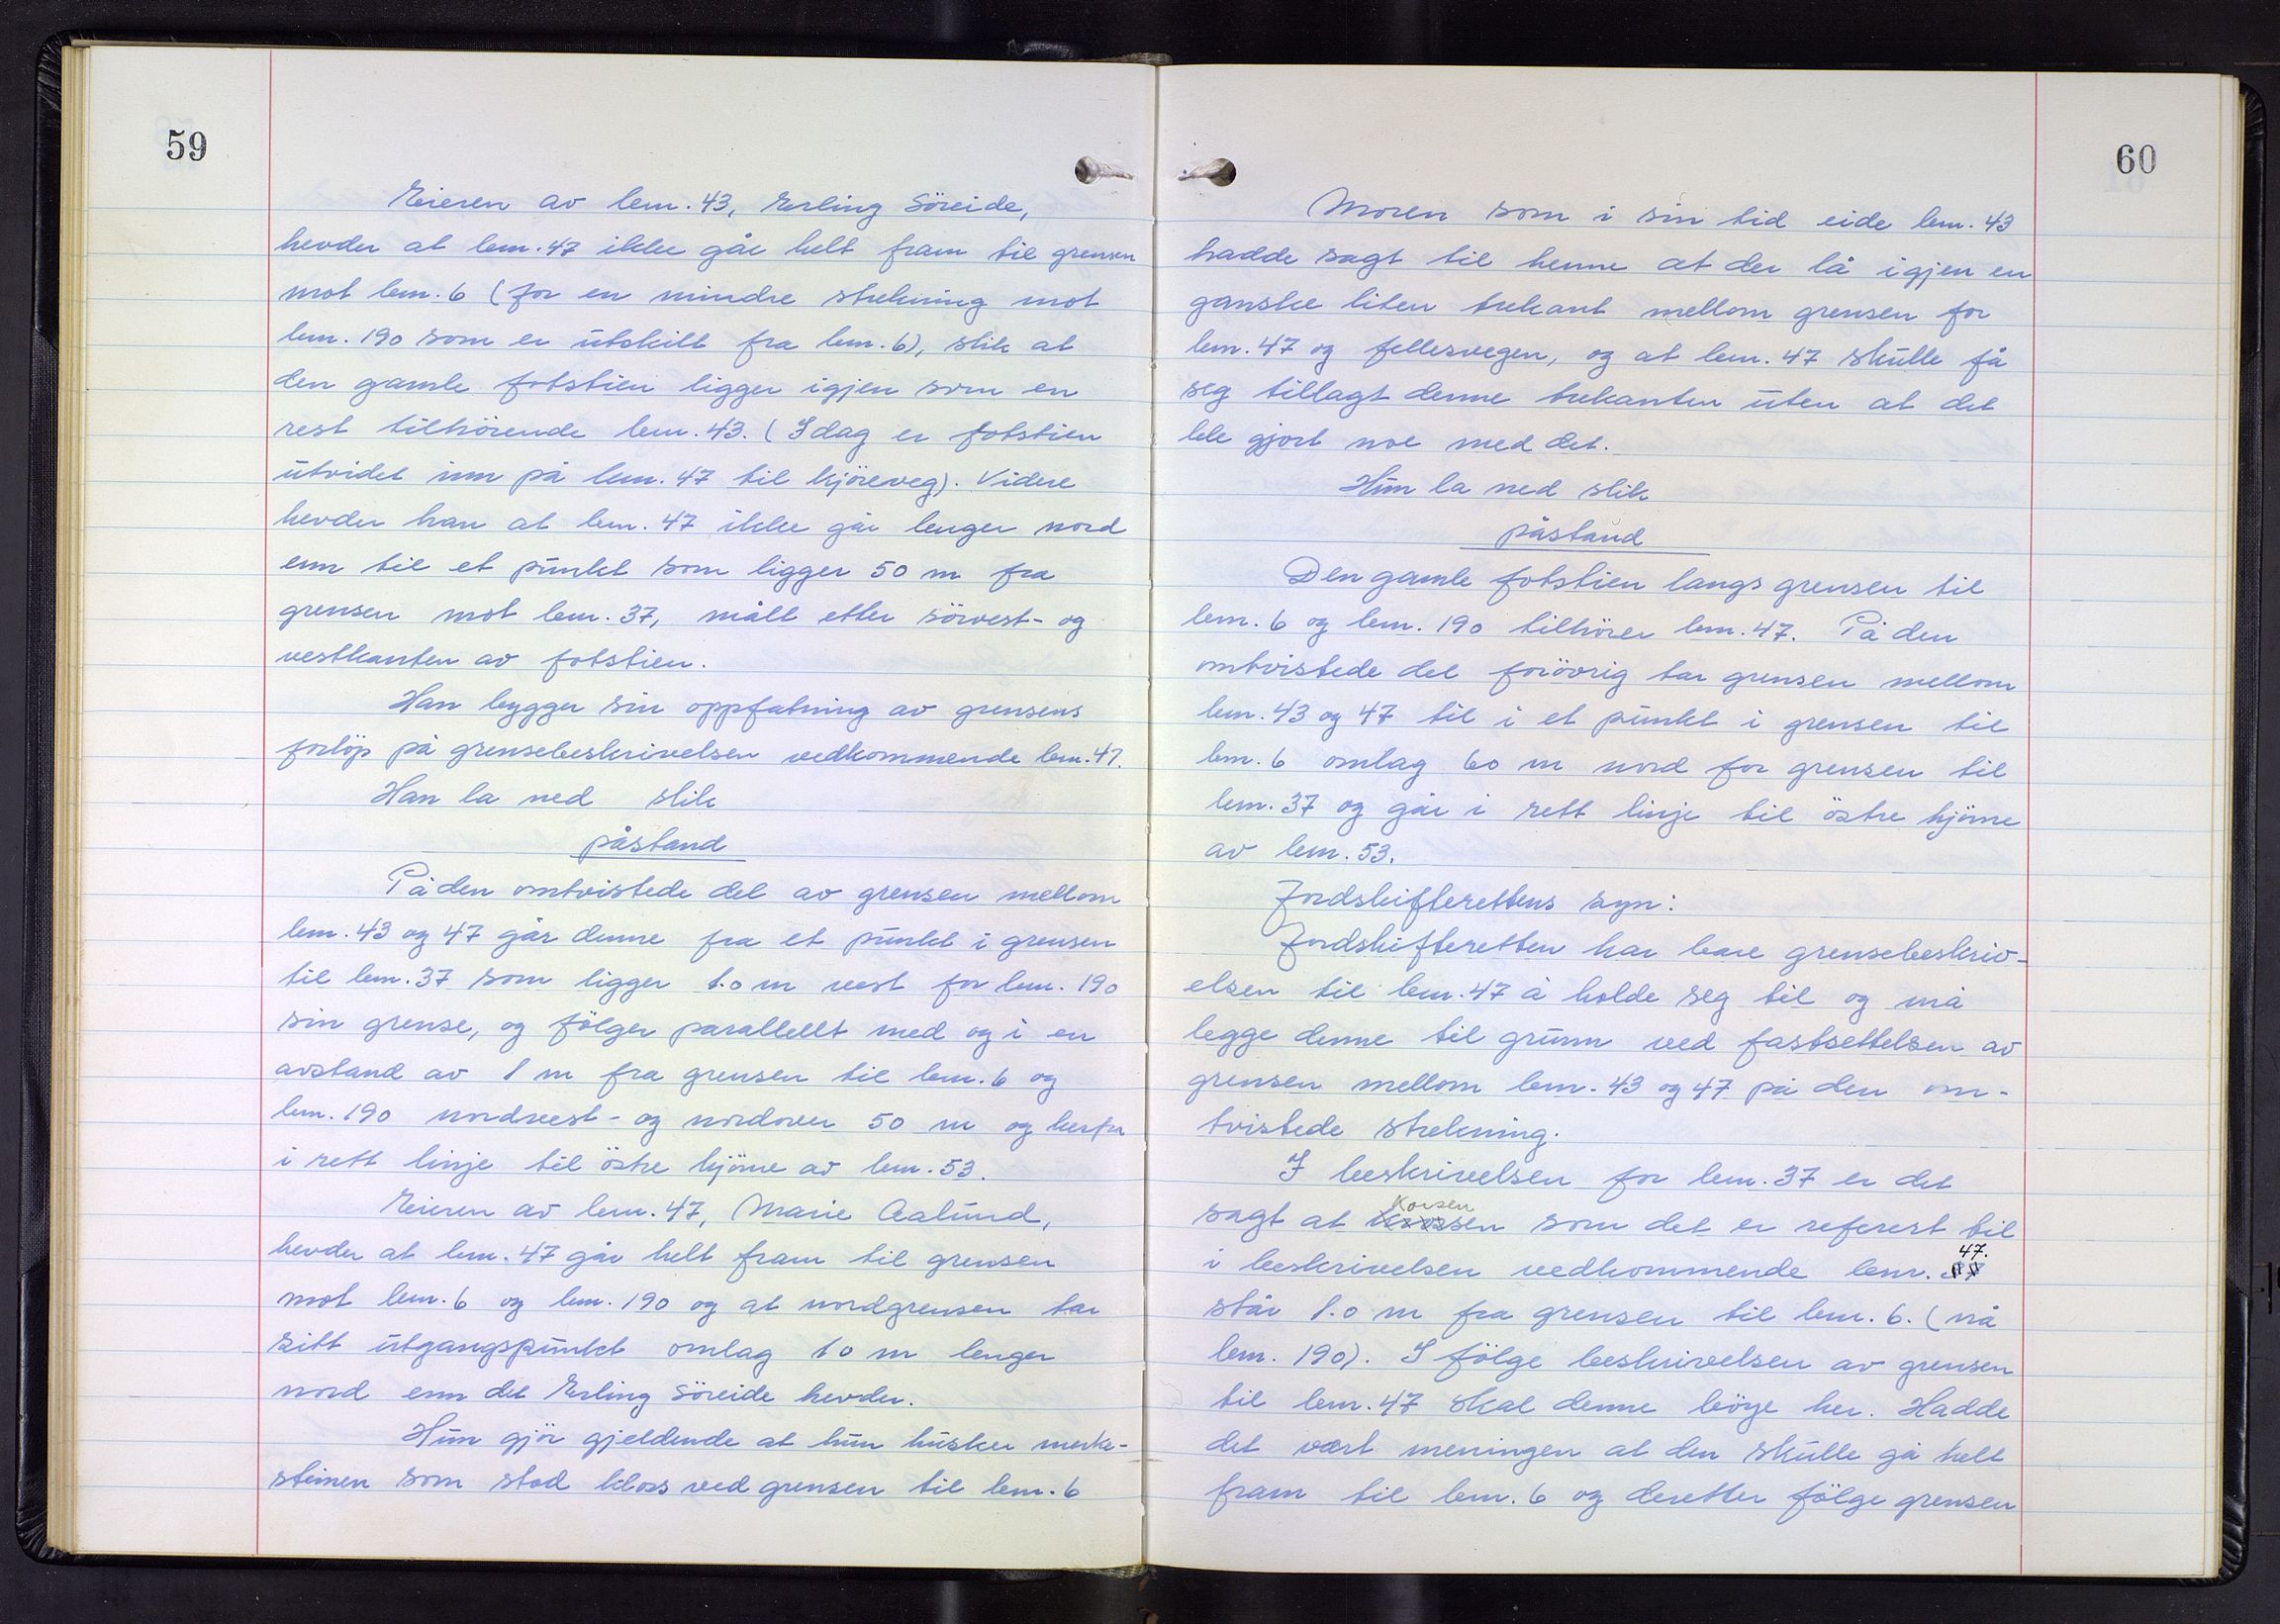 59
Eieren av bnr. 43, Erling Söreide,
hevder at bnr. 47 ikke går helt fram til grensen
mot bnr. 6 (for en mindre strekning mot
bnr. 190 som er utskilt fra bnr. 6), slik at
den gamle fotstien ligger igjen som en
rest tilhörende bnr. 43. (I dag er fotstien
utvidet inn på bnr. 47 til kjöreveg). Videre
hevder han at bnr. 47 ikke går lenger nord
enn til et punkt som ligger 50 m fra
grensen mot bnr. 37, målt etter sörvest- og
vestkanten av fotstien.
Han bygger sin oppfatning av grensens
forlöp på grensebeskrivelsen vedkommende bnr. 47.
Han la ned slik
påstand
På den omtvistede del av grensen mellom
bnr. 43 og 47 går denne fra et punkt i grensen
til bnr. 37 som ligger 1.0 m vest for bnr. 190
sin grense, og fölger parallellt med og i en
avstand av 1 m fra grensen til bnr. 6 og
bnr. 190 nordvest- og nordover 50 m og herfra
i rett linje til östre hjörne av bnr. 53.
Eieren av bnr. 47, Marie Aalund,
hevder at bnr. 47 går helt fram til grensen
mot bnr. 6 og bnr. 190 og at nordgrensen tar
sitt utgangspunkt omlag 10 m lenger
nord enn det Erling Söreide hevder.
Hun gjör gjeldende at hun husker merke-
steinen som stod kloss ved grensen til bnr. 6
60
Moren som i sin tid eide bnr. 43
hadde sagt til henne at der lå igjen en
ganske liten trekant mellom grensen for
bnr. 47 og fellesvegen, og at bnr. 47 skulle få
seg tillagt denne trekanten uten at det
ble gjort noe med det.
Hun la ned slik
påstand
Den gamle fotstien langs grensen til
bnr. 6 og bnr. 190 tilhörer bnr. 47. På den
omtvistede del forövrig tar grensen mellom
bnr. 43 og 47 til i et punkt i grensen til
bnr. 6 omlag 60 m nord for grensen til
bnr. 37 og går i rett linje til östre hjörne
av bnr. 53.
Jordskifterettens syn:
Jordskifteretten har bare grensebeskriv-
elsen til bnr. 47 å holde seg til og må
legge denne til grunn ved fastsettelsen av
grensen mellom bnr. 43 og 47 på den om-
tvistede strekning.
I beskrivelsen for bnr. 37 er det
Korsen
sagt at krossen som det er referert til
47.
i beskrivelsen vedkommende bnr. 37
står 1.0 m fra grensen til bnr. 6. (nå
bnr. 190). I fölge beskrivelsen av grensen
til bnr. 47 skal denne böye her. Hadde
det vært meningen at den skulle gå helt
fram til bnr. 6 og deretter fölge grensen